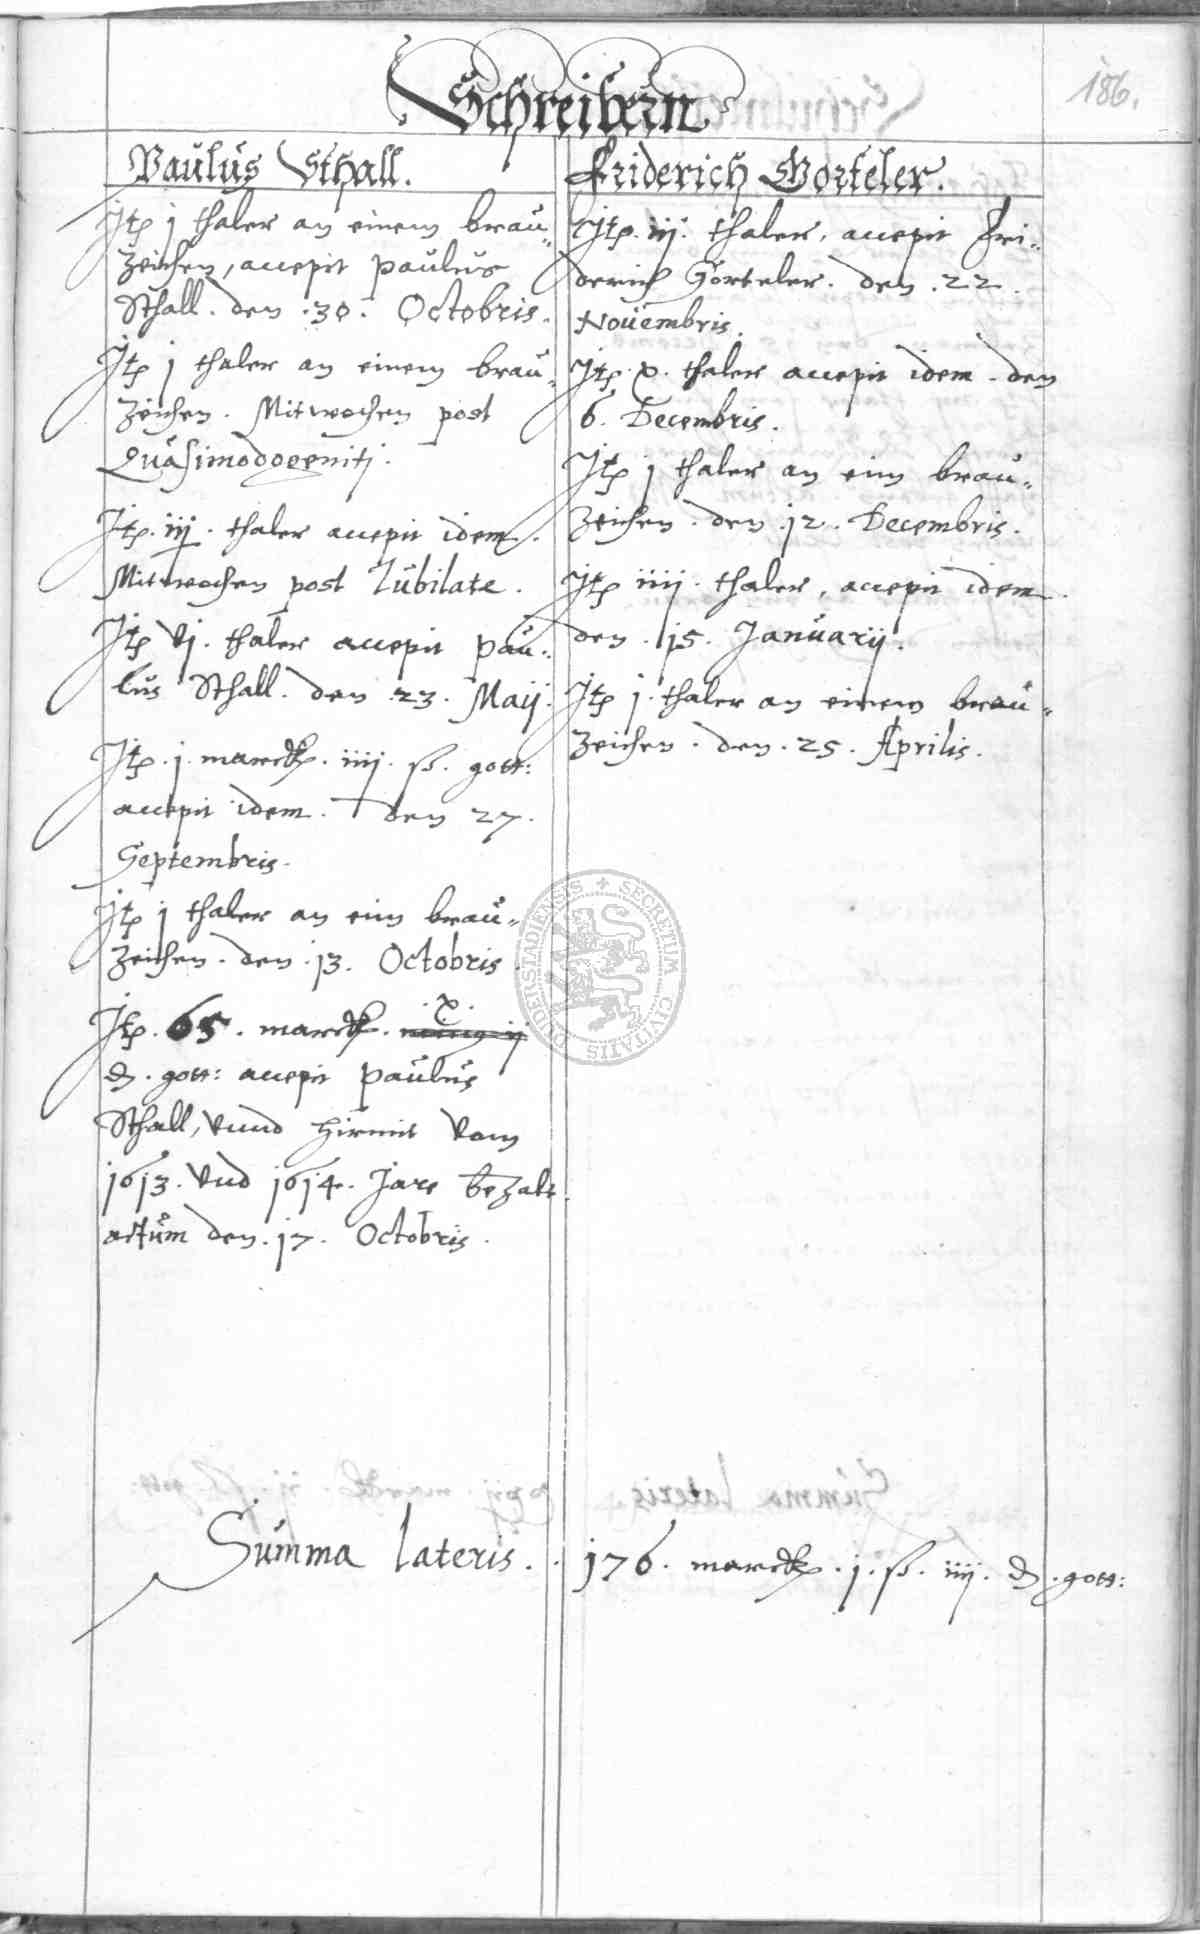 186.
Schreibern
Paulus Sthall.
Jtp j thaler an einem brau„
zeichen, accepit Paulus
Sthall. den .30. Octobris.
Jtp j thaler an einem brau„
zeichen. Mitwochen post
Quasimodogeniti.
Jtp. iij. thaler accepit idem.
Mitwochen post Iubilate.
Jtp vj. thaler accepit Pau„
lus Sthall. den .23. Maij.
Jtp. j. marck. iiij. ß. gott:
accepit idem. den 27.
Septembris.
Jtp j thaler an eim brau„
zeichen. den .13. Octobris.
.x.
Jtp. 65. marck.
₰. gott: accepit Paulus
Sthall, vnnd hirmit vom
1613. vnd 1614. Jare bezalt.
actum den .17. Octobris.
Friderich Gorteler.
Jtp. iij. thaler, accepit Fri„
derich Gorteler. den .22.
Nouembris.
Jtp. x. thaler accepit idem. den
6. Decembris.
Jtp j thaler an eim brau„
zeichen. den .12. Decembris.
Jtp iiij. thaler, accepit idem.
den .15. Januarij.
Jtp j. thaler an einem brau„
zeichen. den .25. Aprilis.
Summa lateris. . 176. marck. j. ß. iiij. ₰. gott:
SECRETUM CIVITATIS DUDERSTADIENSIS